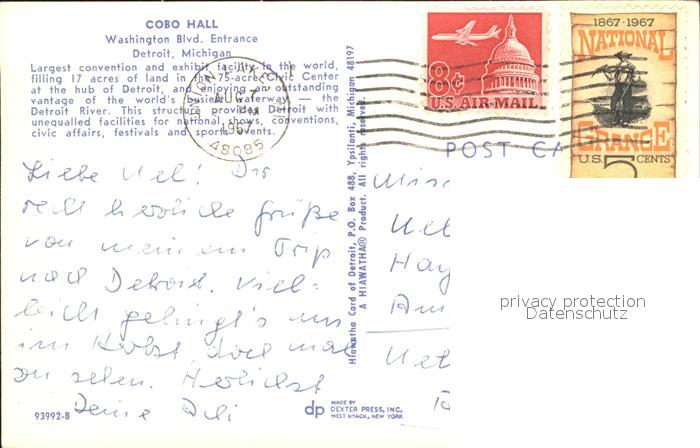 COBO HALL
Washington Blvd. Entrance
Detroit, Michigan
Largest convention and exhibit facility in the world,
filling 17 acres of land in the 75-acre Civic Center
at the hub of Detroit, and enjoying an outstanding
vantage of the world's busiest waterway — the
Detroit River. This structure provides Detroit with
unequalled facilities for national shows, conventions,
civic affairs, festivals and sports events.
AUG 7
PM
1967
48085
8¢
U.S. AIR-MAIL
1867·1967
NATIONAL
GRANGE
U.S. 5 CENTS
POST CA
Liebe Uel! Dir
recht herzliche Grüße
von meinem Trip
nach Detroit. Viel-
leicht gelingt's uns
im Herbst, doch mal
zu sehen. Herzlichst
Deine
Hiawatha Card of Detroit, P.O. Box 488, Ypsilanti, Michigan 48197
A HIAWATHA® Product. All rights reserved.
privacy protection
Datenschutz
93992-B
dp
MADE BY
DEXTER PRESS, INC.
WEST NYACK, NEW YORK